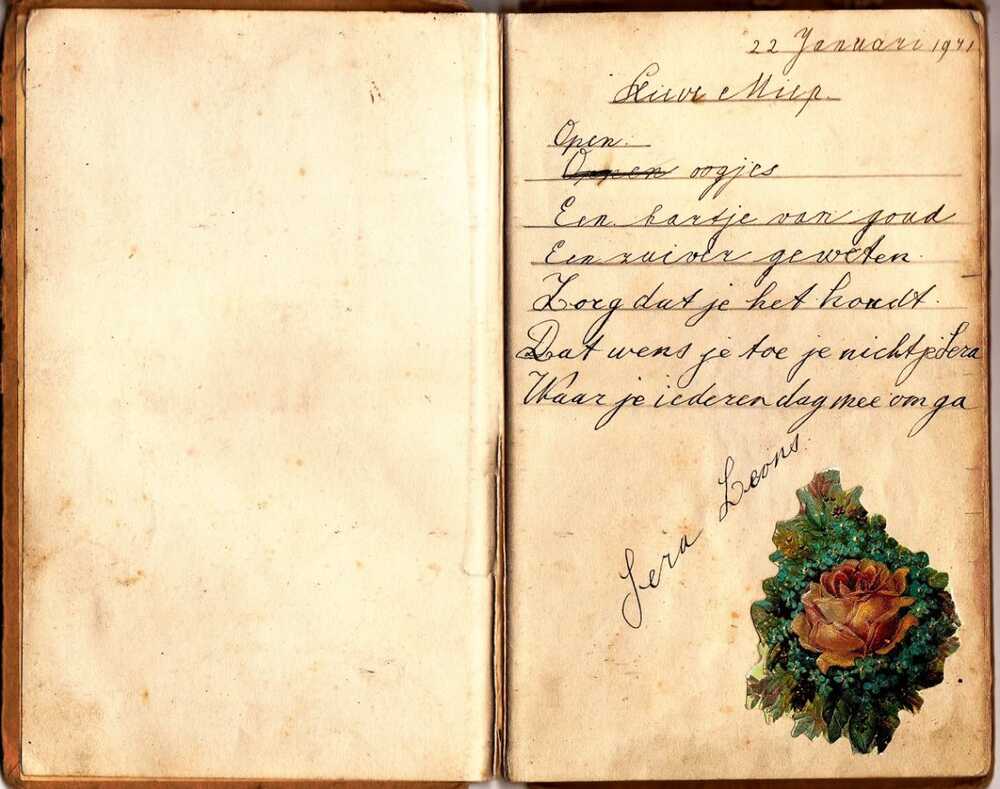 22 Januari 1941
Lieve Miep.
Open.
Oopen oogjes
Een hartje van goud
Een zuiver geweten.
Zorg dat je het houdt.
Dat wens je toe je nichtje Sera
Waar je iederen dag mee om ga
Sera Leons.